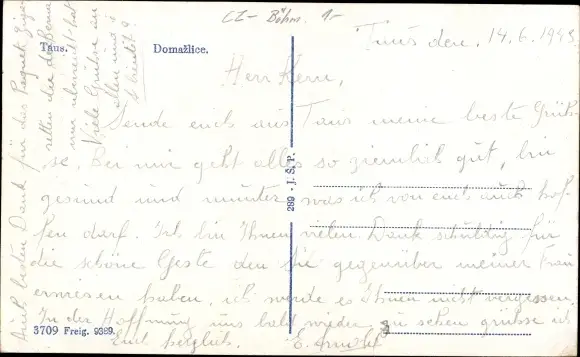 CZ - Böhm. 1.-
Taus.
Domažlice.
Taus den. 14.6.1943
Herr Kern,
Sende euch aus Taus meine beste Grüs-
se. Bei mir geht alles so ziemlich gut, bin
gesund und munter was ich von euch auch hof-
fen darf. Ich bin Ihnen vielen Dank schuldig für
die schöne Geste den Sie gegenüber meiner Frau
erwiesen haben, ich werde es Ihnen nicht vergessen.
In der Hoffnung uns bald wieder zu sehen grüsse ich
Euch herzlich. E. Arnold
289 - J. Š. P.
3709 Freig. 9389.
Auch besten Dank für das Paquet
Viele Grüsse an
allen und
à bientôt